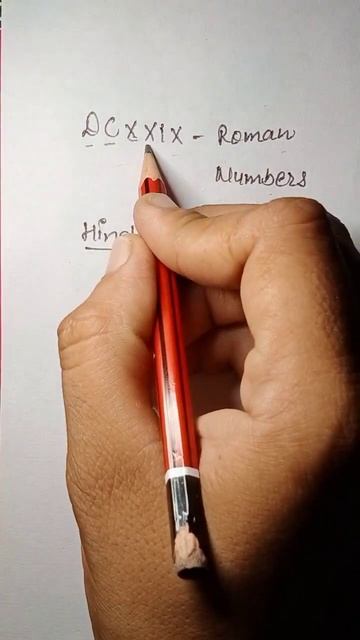 DCXXIX - Roman
Numbers